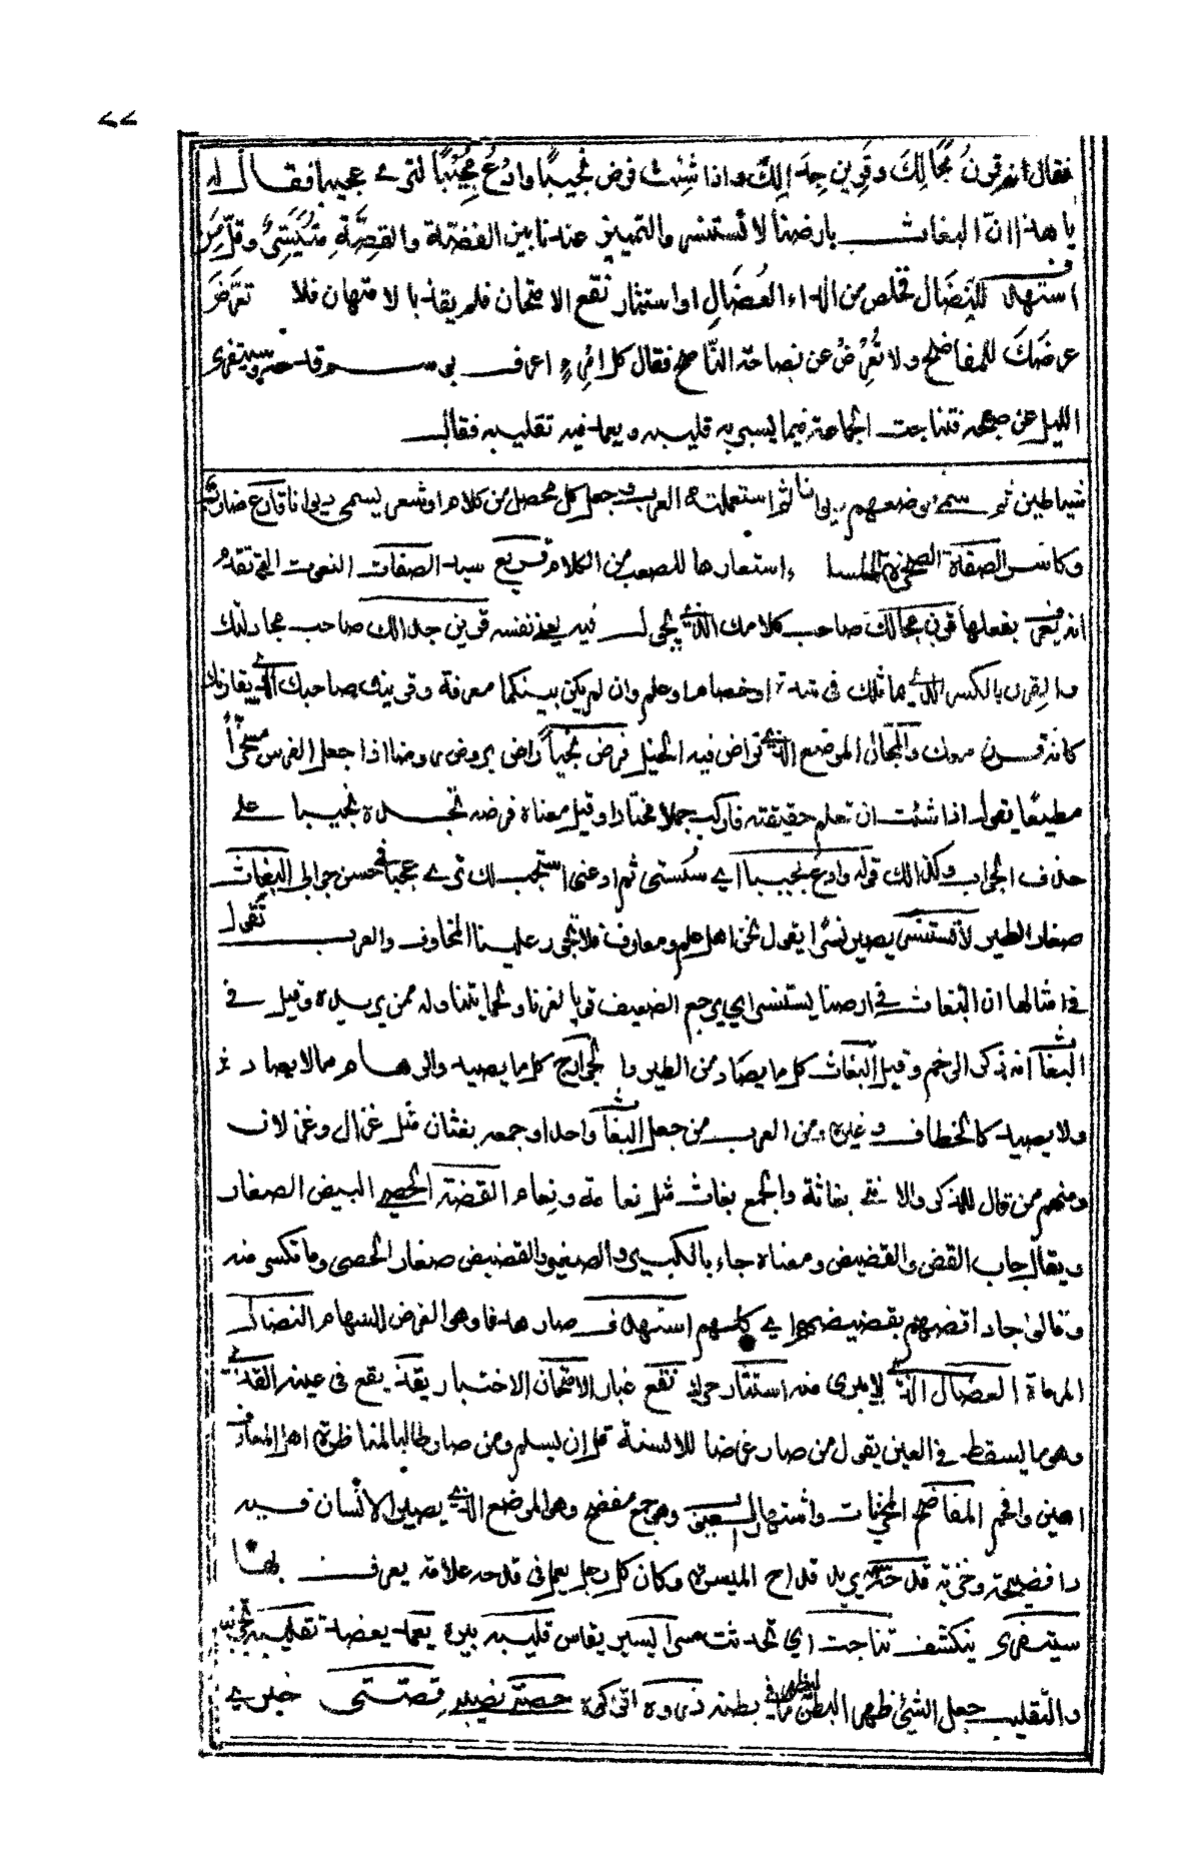 ٢٢
فقال انه قرن مجالك وقرين جدالك واذا شئت فرض نجيبا وادع مجيبا لترى عجيبا فقال له
يا هذا ان البغاث بارضنا لا تستنسر والتمييز عندنا بين الفضة والقضة متيسر وقل من
استهدف للنضال فخلص من الداء العضال او استثار نقع الامتحان فلم يقذ بالامتهان فلا تعرض
عرضك للمفاضح ولا تعرض عن نصاحة الناصح فقال كل امرء اعرف بوسم قدحه وسيتفرى
الليل عن صبحه فتناجت الجماعة فيما يسبر به قليبه ويعمد فيه تقليبه فقال
شياطين ثم سمى موضعهم ديوانا ثم استعملته العرب وجعل كل محصل من كلام او شعر يسمى ديوانا قارع ضارب
وكاسر الصفاة الصخرة الملسا استعارها للصعب من الكلام قريع سيد الصفات النعوت التي تقدم
انه بفعلها قرن مجالك صاحب كلامك الذي يجول فيه يعني نفسه قرين جدالك صاحب مجادلتك
والقرن بالكسر الذي يماثلك في شدة او خصام او علم وان لم يكن بينكما معرفة وقرينك صاحبك الذي يقارنك
كانه قرن والمجال الموضع الذي تراض فيه الخيل فرض نجيبا راض يروض روضا اذا جعل الفرس مسخرا
مطيعا يقول اذا شئت ان تعلم حقيقته فاركب جملا مختارا وقيل معناه فرضه تجده نجيبا على
حذف الجواب وكذلك قوله وادع مجيبا اي ثم ادعني استجب لك ترى عجبا في حسن جوابي البغاث
صغار الطير لا تستنسر يصير نسرا يقول نحن اهل علم ومعارف فلا تجوز علينا المخاوف والعرب تقول
في امثالها ان البغاث في ارضنا يستنسر اي يرجع الضعيف قويا لعزنا وحمايتنا له ممن يريده وقيل في
البغاث انه ذكر الرخم وقيل البغاث كل ما يصاد من الطير والجوارح كل ما يصيد والرهام ما لا يصاد
ولا يصيد كالخطاف وغيره ومن العرب من جعل البغاث واحدا وجمعه بغثان مثل غزال وغزلان
ومنهم من قال للذكر والانثى بغاثة والجمع بغاث مثل نعامة ونعام القضة الحصى البيض الصغار
ويقال جاب القض والقضيض ومعناه جاء بالكبير والصغير والقضيض صغار الحصى وما تكسر منه
وقالوا جاد اقضهم بقضيضهم اي كلهم استهدف صار هدفا وهو الغرض للسهام النضال
المرماة العضال الذي لا يبرى منه استثار حرك نقع غبار الامتحان الاختبار يقذ يقع في عينه القذى
وهو ما يسقط في العين يقول من صار غرضا للالسنة قل ان يسلم ومن صار طالبا لمناظرة اهل المعارف
اهين وافحم المفاضح المخزيات واشتهار العيب وهو جمع مفضح وهو الموضع الذي يصير الانسان فيه
ذا فضيحة وخزية قدحه سهمه يريد قداح الميسر وكان كل رجل يعمل في قدحه علامة يعرف بها
سيتفرى ينكشف تناجت اي تحدثت سرا يسبر يقاس قليبه بيره يعمد يقصد تقليبه
والتقليب جعل الشيئ ظهر البطن بطنه ذروه اتركوه حصتي نصيبي قصتي خبري